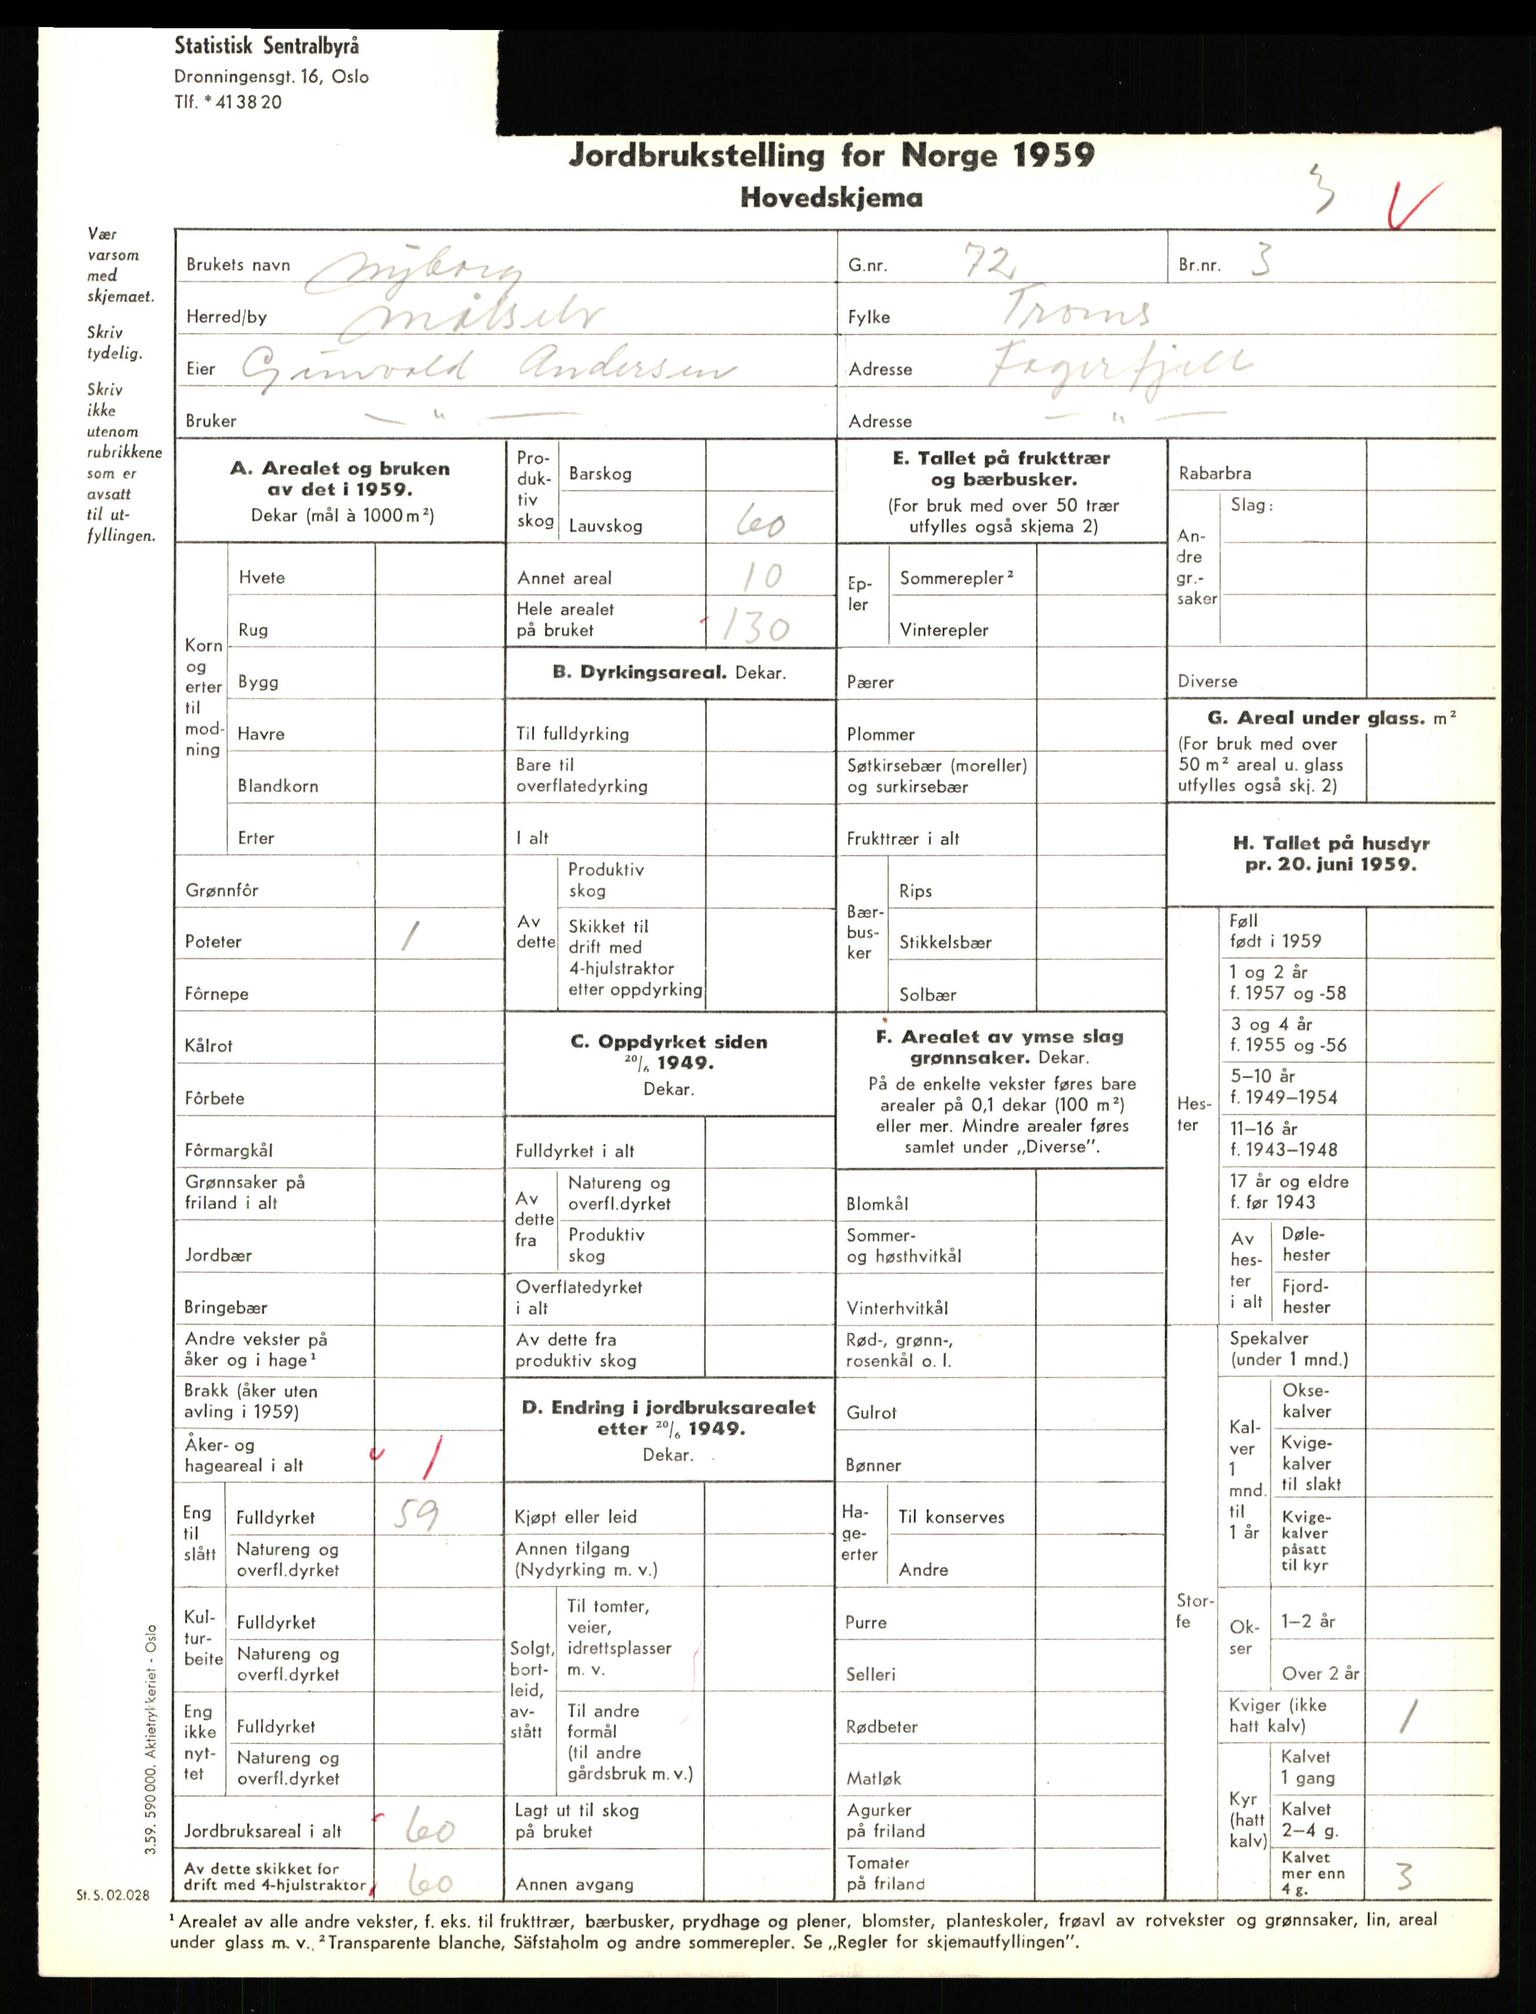 Statistisk Sentralbyrå
Dronningensgt. 16, Oslo
Tlf. * 41 38 20
Jordbrukstelling for Norge 1959
Hovedskjema
3 V
Vær
varsom
med
skjemaet.
Skriv
tydelig.
Skriv
ikke
utenom
rubrikkene
som er
avsatt
til ut-
fyllingen.
Brukets navn Nyborg G.nr. 72 Br.nr. 3
Herred/by Målselv Fylke Troms
Eier Gunvald Andersen Adresse Fagerfjell
Bruker — " — Adresse — " —
A. Arealet og bruken
av det i 1959.
Dekar (mål à 1000 m²)
Korn
og
erter
til
mod-
ning
Hvete
Rug
Bygg
Havre
Blandkorn
Erter
Grønnfôr
Poteter 1
Fôrnepe
Kålrot
Fôrbete
Fôrmargkål
Grønnsaker på
friland i alt
Jordbær
Bringebær
Andre vekster på
åker og i hage¹
Brakk (åker uten
avling i 1959)
Åker- og
hageareal i alt 1
Eng
til
slått
Fulldyrket 59
Natureng og
overfl.dyrket
Kul-
tur-
beite
Fulldyrket
Natureng og
overfl.dyrket
Eng
ikke
nyt-
tet
Fulldyrket
Natureng og
overfl.dyrket
Jordbruksareal i alt 60
Av dette skikket for
drift med 4-hjulstraktor 60
Pro-
duk-
tiv
skog
Barskog
Lauvskog 60
Annet areal 10
Hele arealet
på bruket 130
B. Dyrkingsareal. Dekar.
Til fulldyrking
Bare til
overflatedyrking
I alt
Av
dette
Produktiv
skog
Skikket til
drift med
4-hjulstraktor
etter oppdyrking
C. Oppdyrket siden
20/6 1949.
Dekar.
Fulldyrket i alt
Av
dette
fra
Natureng og
overfl.dyrket
Produktiv
skog
Overflatedyrket
i alt
Av dette fra
produktiv skog
D. Endring i jordbruksarealet
etter 20/6 1949.
Dekar.
Kjøpt eller leid
Annen tilgang
(Nydyrking m. v.)
Solgt,
bort-
leid,
av-
stått
Til tomter,
veier,
idrettsplasser
m. v.
Til andre
formål
(til andre
gårdsbruk m. v.)
Lagt ut til skog
på bruket
Annen avgang
E. Tallet på frukttrær
og bærbusker.
(For bruk med over 50 trær
utfylles også skjema 2)
Ep-
ler
Sommerepler²
Vinterepler
Pærer
Plommer
Søtkirsebær (moreller)
og surkirsebær
Frukttrær i alt
Bær-
bus-
ker
Rips
Stikkelsbær
Solbær
F. Arealet av ymse slag
grønnsaker. Dekar.
På de enkelte vekster føres bare
arealer på 0,1 dekar (100 m²)
eller mer. Mindre arealer føres
samlet under „Diverse”.
Blomkål
Sommer-
og høsthvitkål
Vinterhvitkål
Rød-, grønn-,
rosenkål o. l.
Gulrot
Bønner
Ha-
ge-
erter
Til konserves
Andre
Purre
Selleri
Rødbeter
Matløk
Agurker
på friland
Tomater
på friland
Rabarbra
An-
dre
gr.-
saker
Slag:
Diverse
G. Areal under glass. m²
(For bruk med over
50 m² areal u. glass
utfylles også skj. 2)
H. Tallet på husdyr
pr. 20. juni 1959.
Hes-
ter
Føll
født i 1959
1 og 2 år
f. 1957 og -58
3 og 4 år
f. 1955 og -56
5–10 år
f. 1949–1954
11–16 år
f. 1943–1948
17 år og eldre
f. før 1943
Av
hes-
ter
i alt
Døle-
hester
Fjord-
hester
Stor-
fe
Spekalver
(under 1 mnd.)
Kal-
ver
1
mnd.
til
1 år
Okse-
kalver
Kvige-
kalver
til slakt
Kvige-
kalver
påsatt
til kyr
Ok-
ser
1–2 år
Over 2 år
Kviger (ikke
hatt kalv) 1
Kyr
(hatt
kalv)
Kalvet
1 gang
Kalvet
2–4 g.
Kalvet
mer enn
4 g. 3
3.59. 590 000. Aktietrykkeriet - Oslo
St. S. 02.028
¹ Arealet av alle andre vekster, f. eks. til frukttrær, bærbusker, prydhage og plener, blomster, planteskoler, frøavl av rotvekster og grønnsaker, lin, areal
under glass m. v. ² Transparente blanche, Säfstaholm og andre sommerepler. Se „Regler for skjemautfyllingen”.